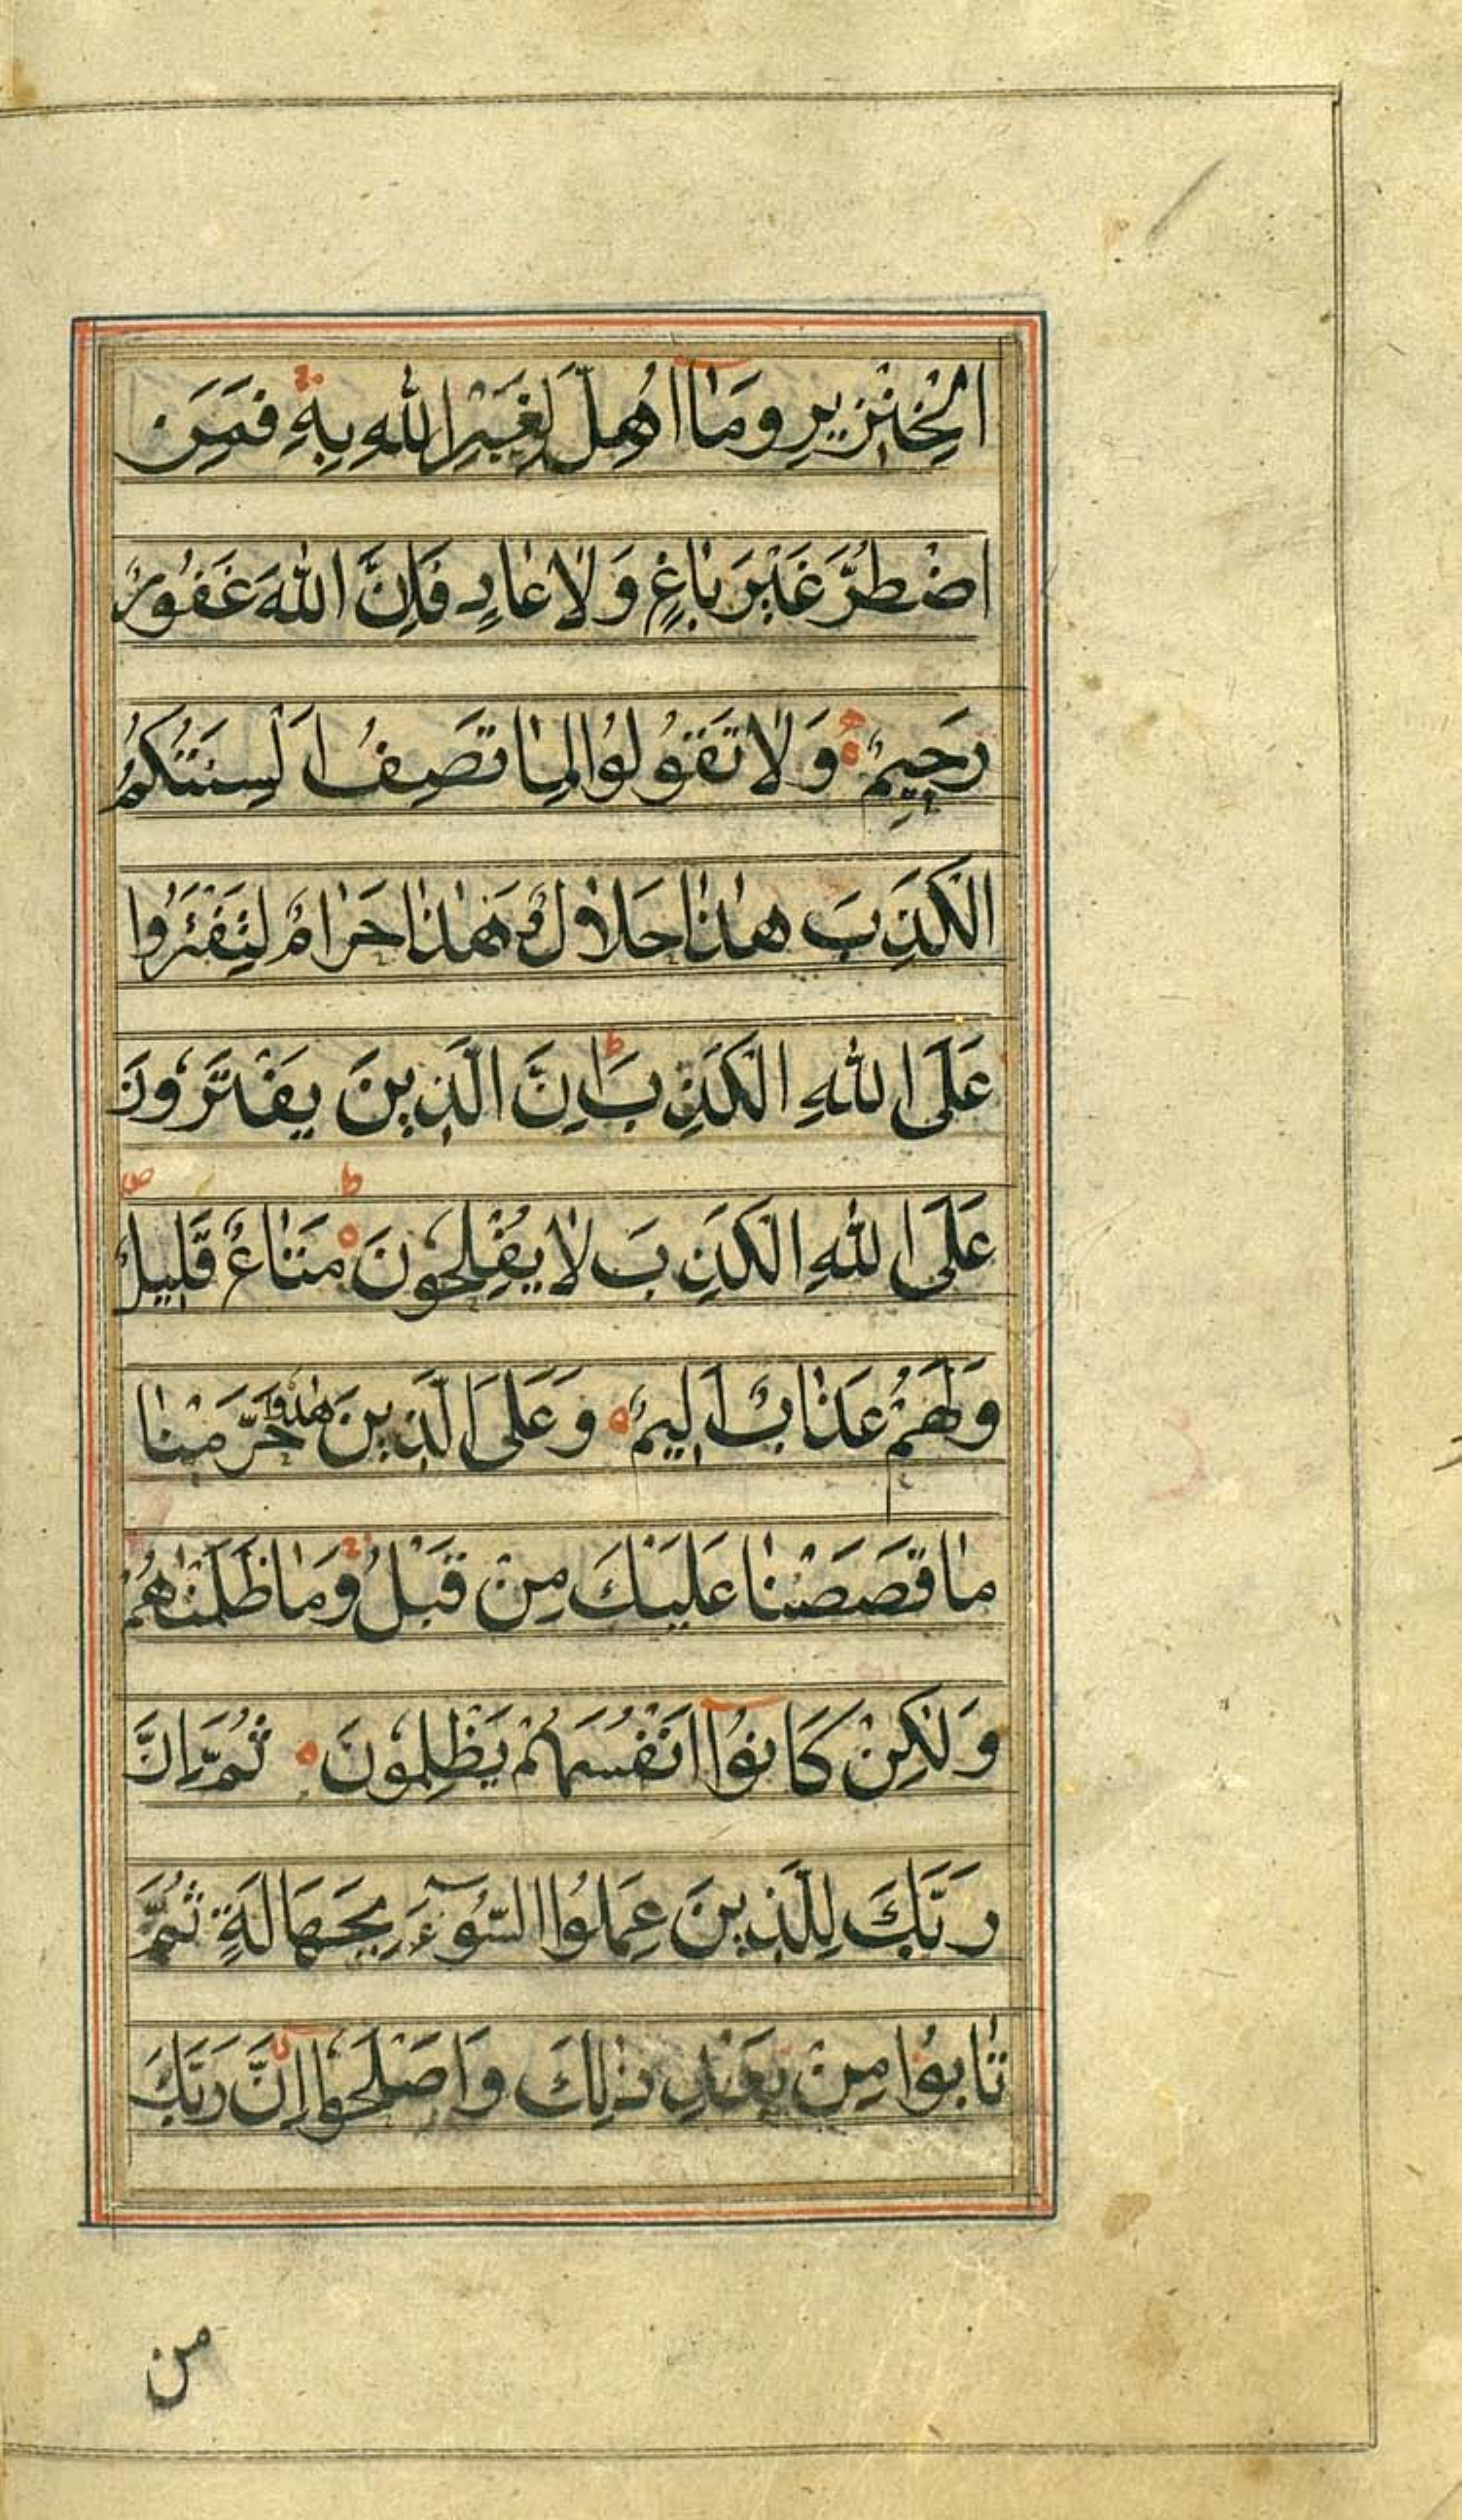 الْخِنْزِيرِ وَمَآ اُهِلَّ لِغَيْرِ اللهِ بِهٖ فَمَنِ
اضْطُرَّ غَيْرَ بَاغٍ وَلَا عَادٍ فَاِنَّ اللهَ غَفُورٌ
رَحِيمٌ وَلَا تَقُولُوا لِمَا تَصِفُ اَلْسِنَتُكُمُ
الْكَذِبَ هٰذَا حَلَالٌ وَهٰذَا حَرَامٌ لِتَفْتَرُوا
عَلَى اللهِ الْكَذِبَ اِنَّ الَّذِينَ يَفْتَرُونَ
عَلَى اللهِ الْكَذِبَ لَا يُفْلِحُونَ مَتَاعٌ قَلِيلٌ
وَلَهُمْ عَذَابٌ اَلِيمٌ وَعَلَى الَّذِينَ هَادُوا حَرَّمْنَا
مَا قَصَصْنَا عَلَيْكَ مِنْ قَبْلُ وَمَا ظَلَمْنَاهُمْ
وَلٰكِنْ كَانُوآ اَنْفُسَهُمْ يَظْلِمُونَ ثُمَّ اِنَّ
رَبَّكَ لِلَّذِينَ عَمِلُوا السُّوٓءَ بِجَهَالَةٍ ثُمَّ
تَابُوا مِنْ بَعْدِ ذٰلِكَ وَاَصْلَحُوآ اِنَّ رَبَّكَ
من